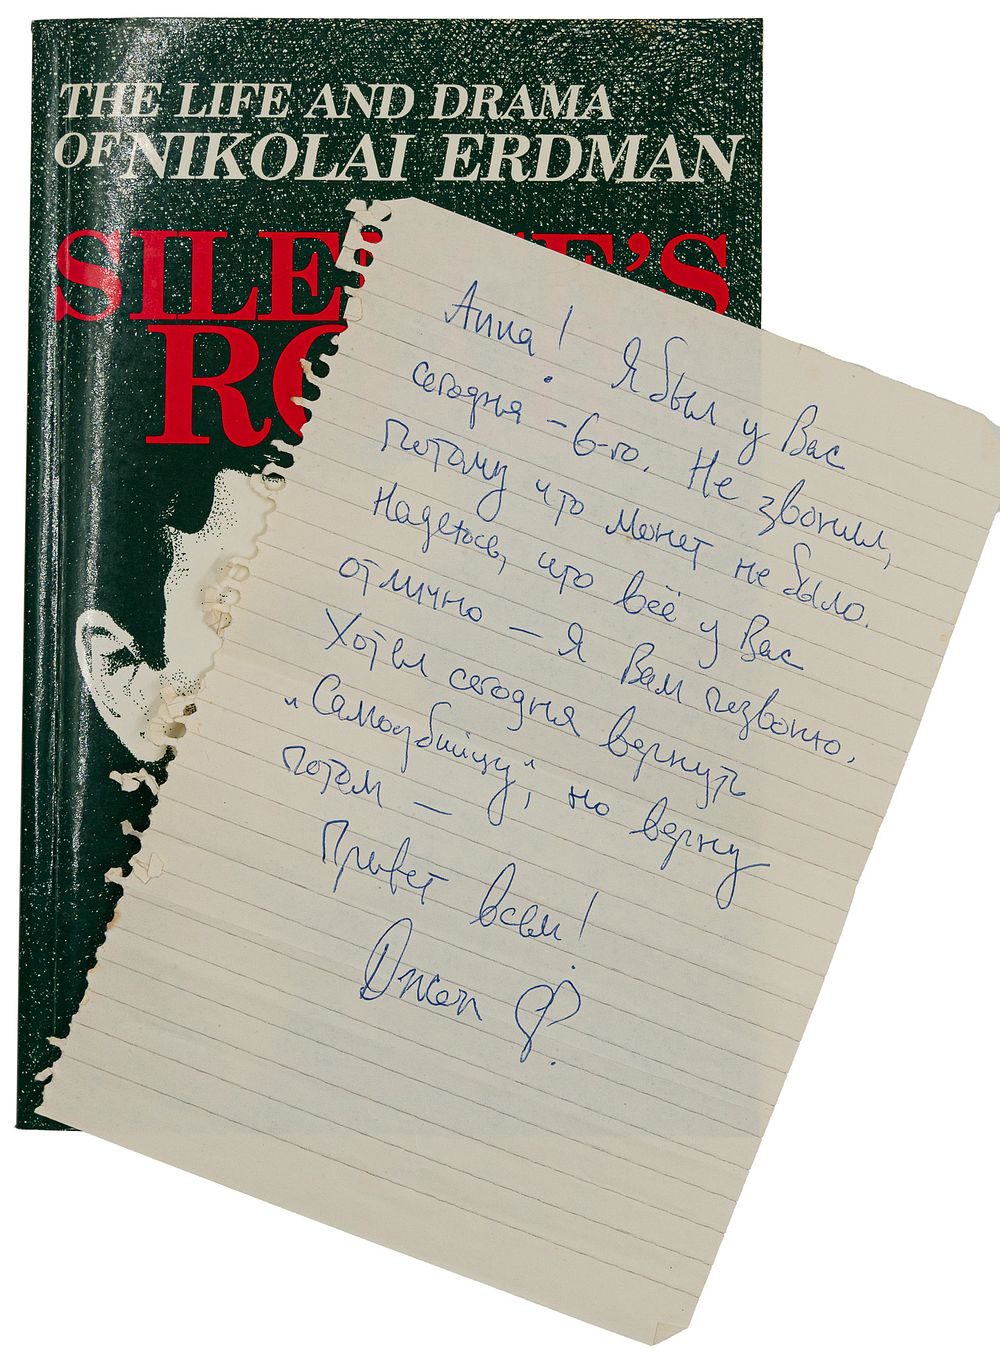 THE LIFE AND DRAMA
OF NIKOLAI ERDMAN
SILE E'S
RO
Анна! Я был у Вас
сегодня – 6-го. Не звонил,
потому что монет не было.
Надеюсь, что всё у Вас
отлично – Я Вам позвоню.
Хотел сегодня вернуть
„Самоубийцу", но верну
потом –
Привет всем!
Джон Ф.